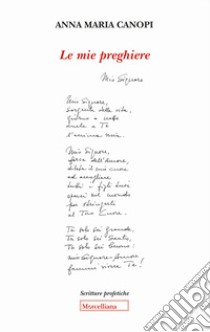 ANNA MARIA CANOPI
Le mie preghiere
Mio Signore
Mio Signore,
sorgente della vita,
anela a Te
l'anima mia.
Mio Signore,
dell'amore,
il mio cuore
ad accogliere
tutti i figli tuoi
sparsi nel mondo
per
al Tuo Cuore.
Tu solo sei grande,
Tu solo sei Santo,
Tu solo sei buono.
mio Signore
fammi vivere Te!
Scritture profetiche
Morcelliana